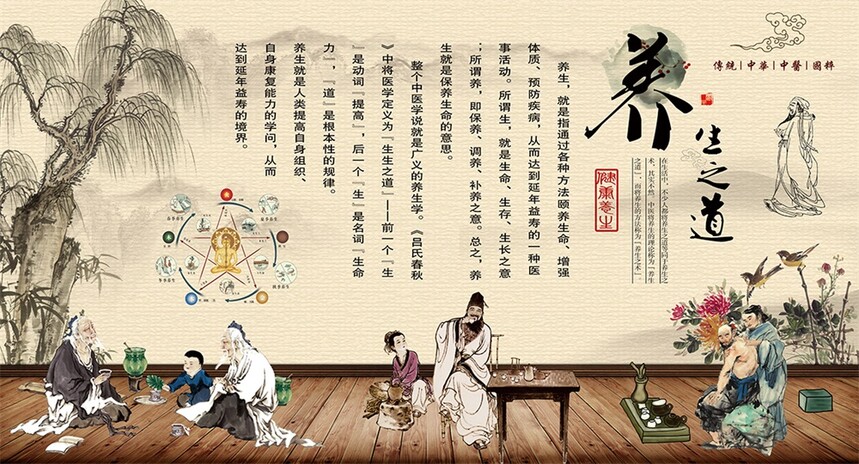 傳統|中華|中醫|國粹
养生之道
在生活中，不少人都将养生之道等同于养生之
术，其实不然，中医将养生的理论称为『养生
之道』，而将养生的方法称为『养生之术』。
健康養生
养生，就是指通过各种方法颐养生命、增强
体质、预防疾病，从而达到延年益寿的一种医
事活动。所谓生，就是生命、生存、生长之意
；所谓养，即保养、调养、补养之意。总之，养
生就是保养生命的意思。
整个中医学说就是广义的养生学。《吕氏春秋
》中将医学定义为『生生之道』——前一个『生
』是动词『提高』，后一个『生』是名词『生命
力』，『道』是根本性的规律。
养生就是人类提高自身组织、
自身康复能力的学问，从而
达到延年益寿的境界。